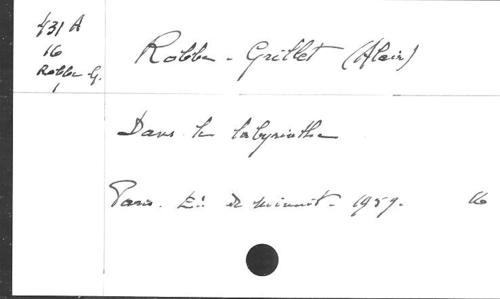 431 A
16
Robbe-G.
1
Robbe-Grillet (Alain)
Dans le labyrinthe
Paris. Ed. de minuit. 1959. 16